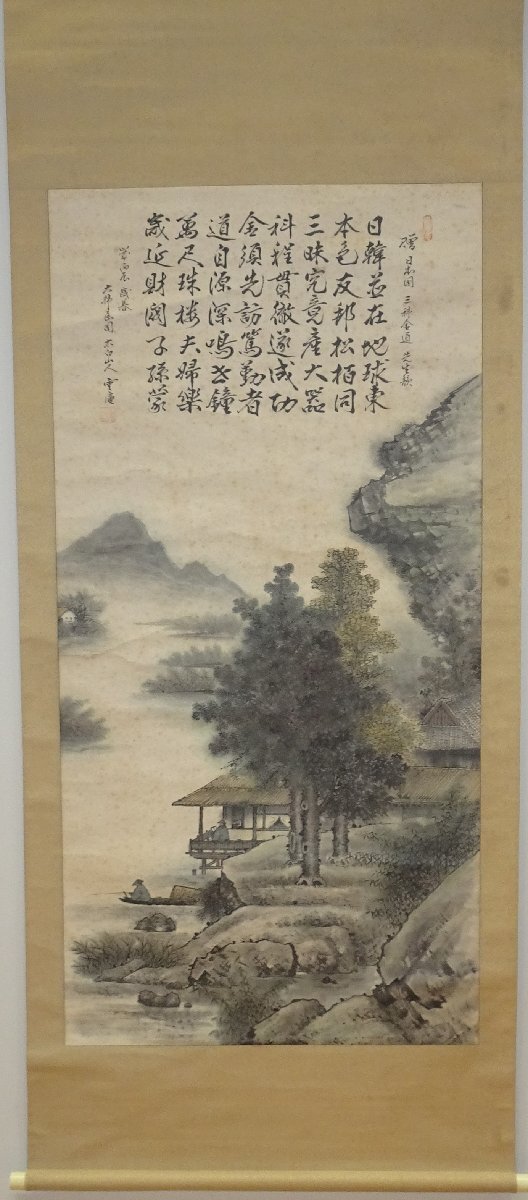 贈 日本国 三科金道 先生
日韓並在地球東
本色友邦松栢同
三昧究竟産大器
科程貫徹遂成功
金須先訪篤勤者
道自源深鳴鐘
萬尺珠樓夫婦樂
歲延財閥子孫蒙
丙辰 歲暮
大韓民国 太白山人 雲庵